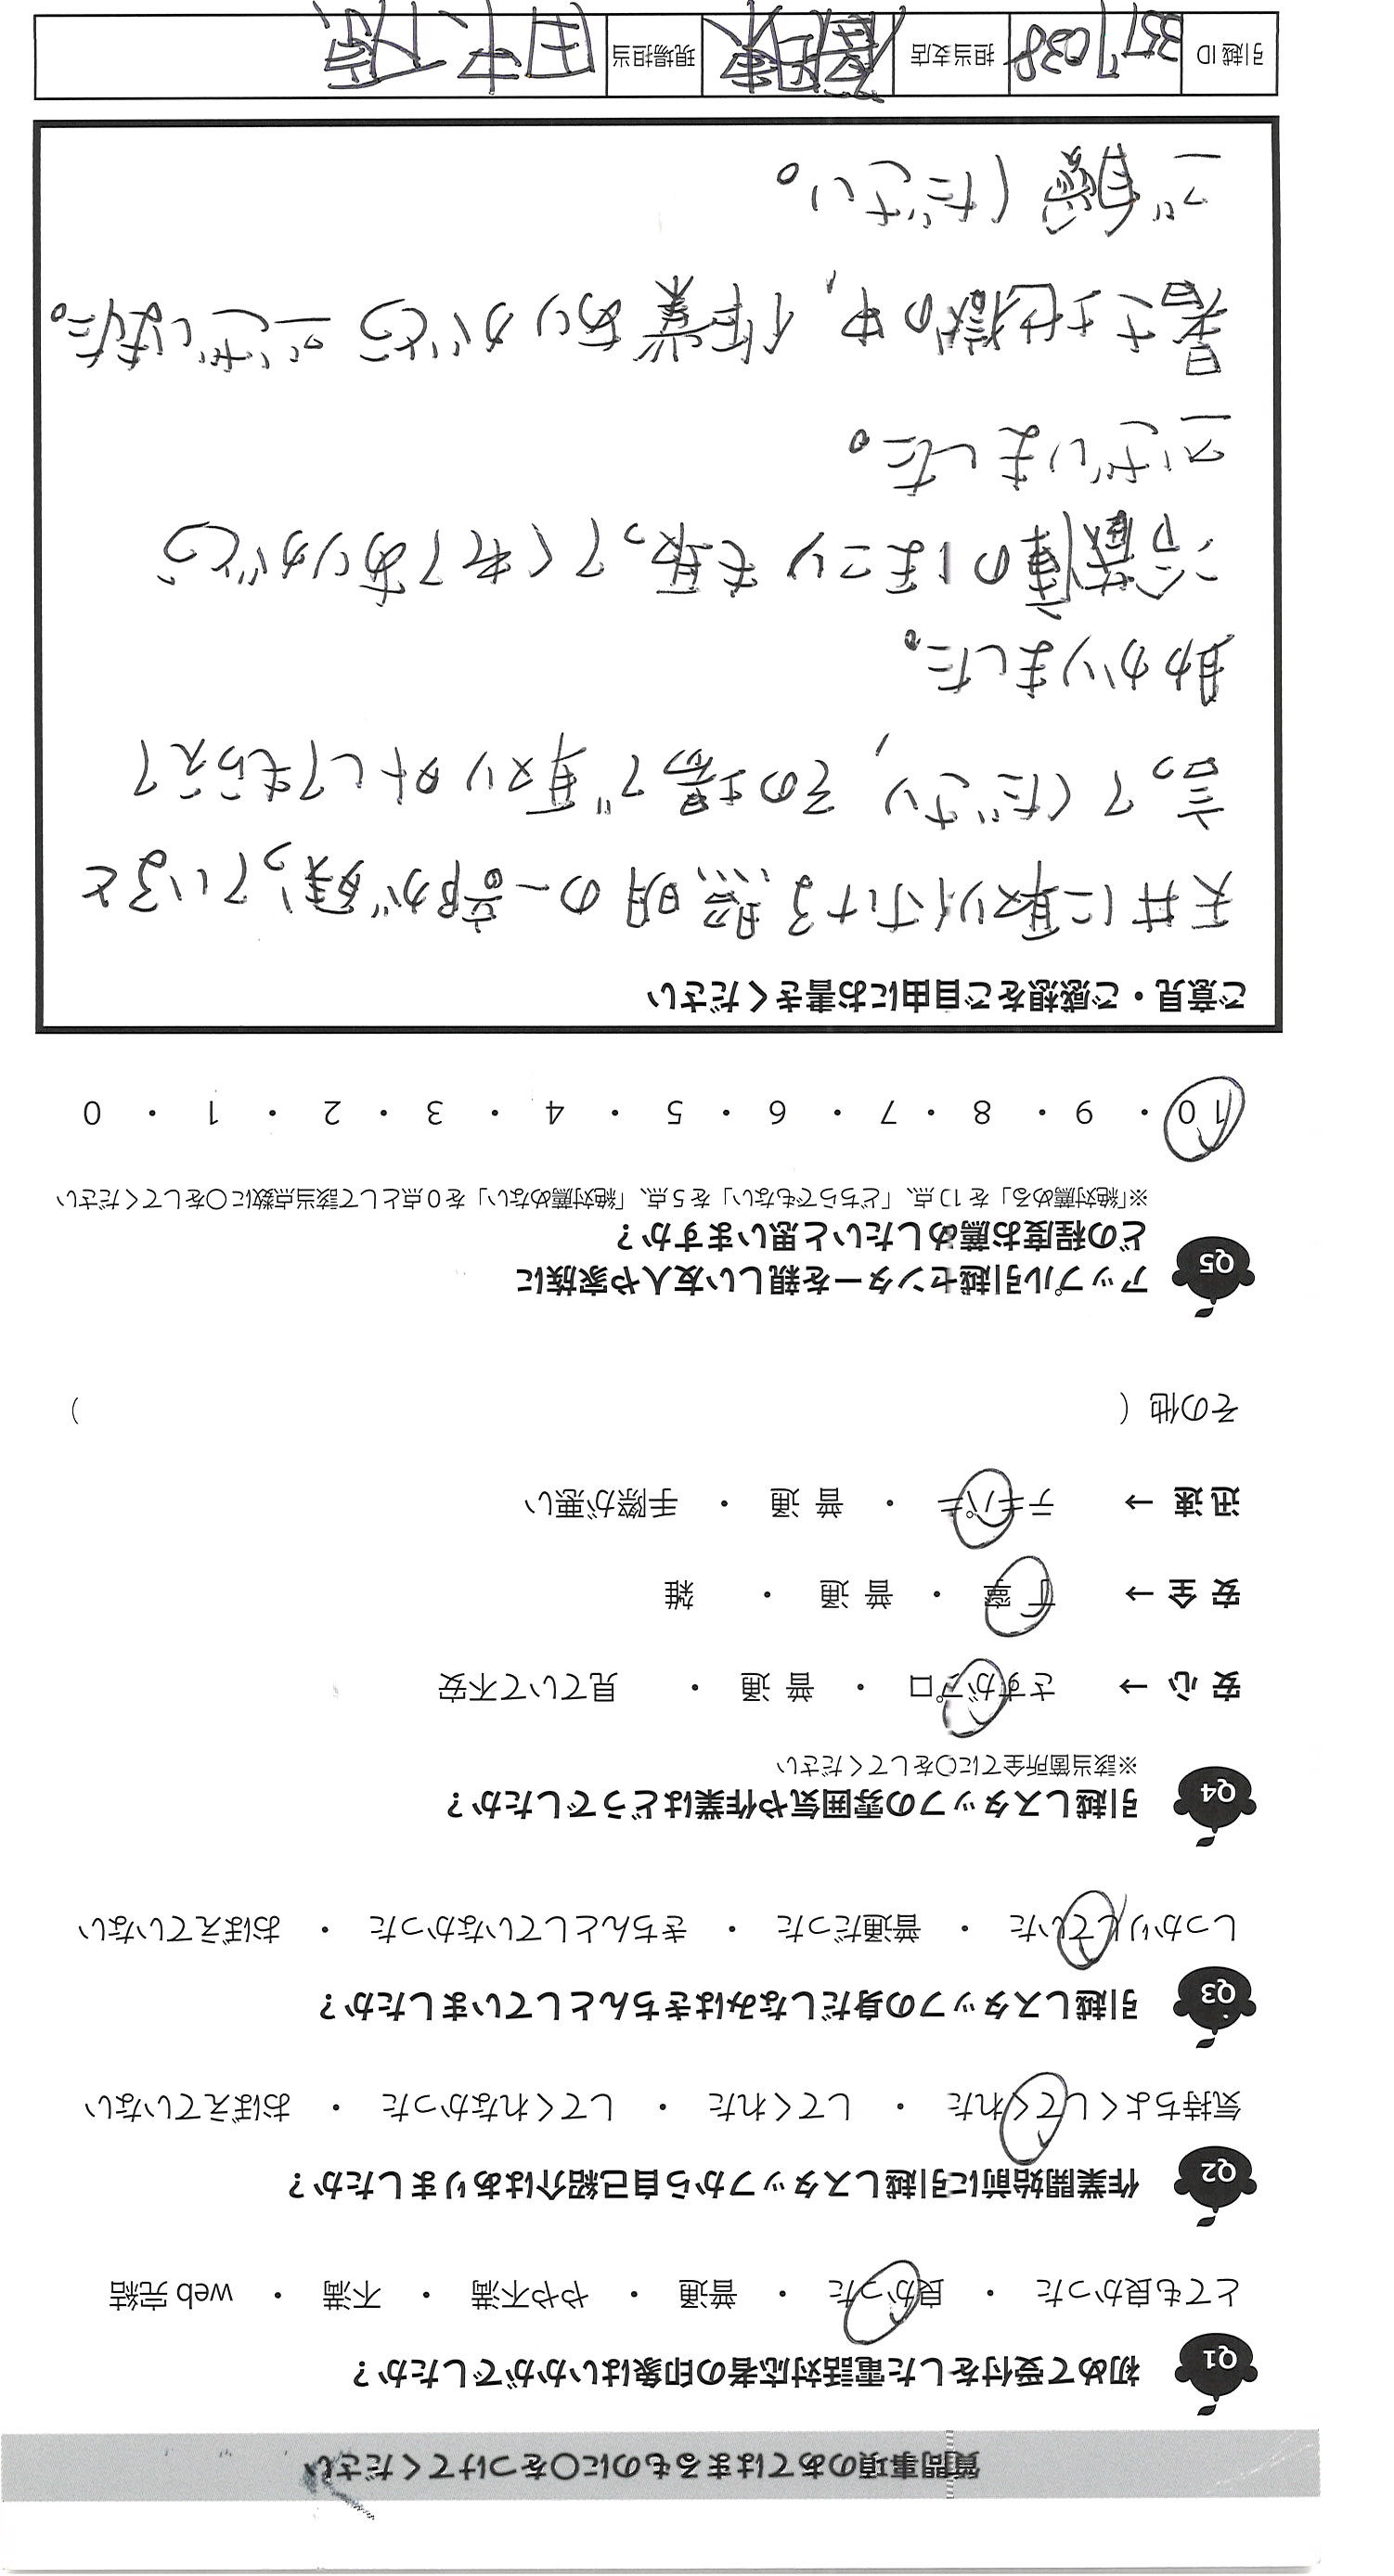 質問事項のあてはまるものに○をつけてください
Q1 初めて受付をした電話対応者の印象はいかがでしたか？
とても良かった ・ 良かった ・ 普通 ・ やや不満 ・ 不満 ・ web 完結
Q2 作業開始前に引越しスタッフから自己紹介はありましたか？
気持ちよくしてくれた ・ してくれた ・ してくれなかった ・ おぼえていない
Q3 引越しスタッフの身だしなみはきちんとしていましたか？
しっかりしていた ・ 普通だった ・ きちんとしていなかった ・ おぼえていない
Q4 引越しスタッフの雰囲気や作業はどうでしたか？
※該当箇所全てに○をしてください
安 心 → さすがプロ ・ 普 通 ・ 見ていて不安
安 全 → 丁 寧 ・ 普 通 ・ 雑
迅 速 → テキパキ ・ 普 通 ・ 手際が悪い
その他（ ）
Q5 アップル引越センターを親しい友人や家族に
どの程度お薦めしたいと思いますか？
※「絶対薦める」を 10 点、「どちらでもない」を 5 点、「絶対薦めない」を 0 点として該当点数に○をしてください
10 ・ 9 ・ 8 ・ 7 ・ 6 ・ 5 ・ 4 ・ 3 ・ 2 ・ 1 ・ 0
ご意見・ご感想をご自由にお書きください
天井に取り付ける照明の一部が残っていると
言ってくださり、その場で取り外してもらえて
助かりました。
冷蔵庫のほこりも取ってくれてありがとう
ございました。
暑さ地獄の中、作業ありがとうございました。
ご自愛ください。
引越 ID 3577038 担当支店 現場担当